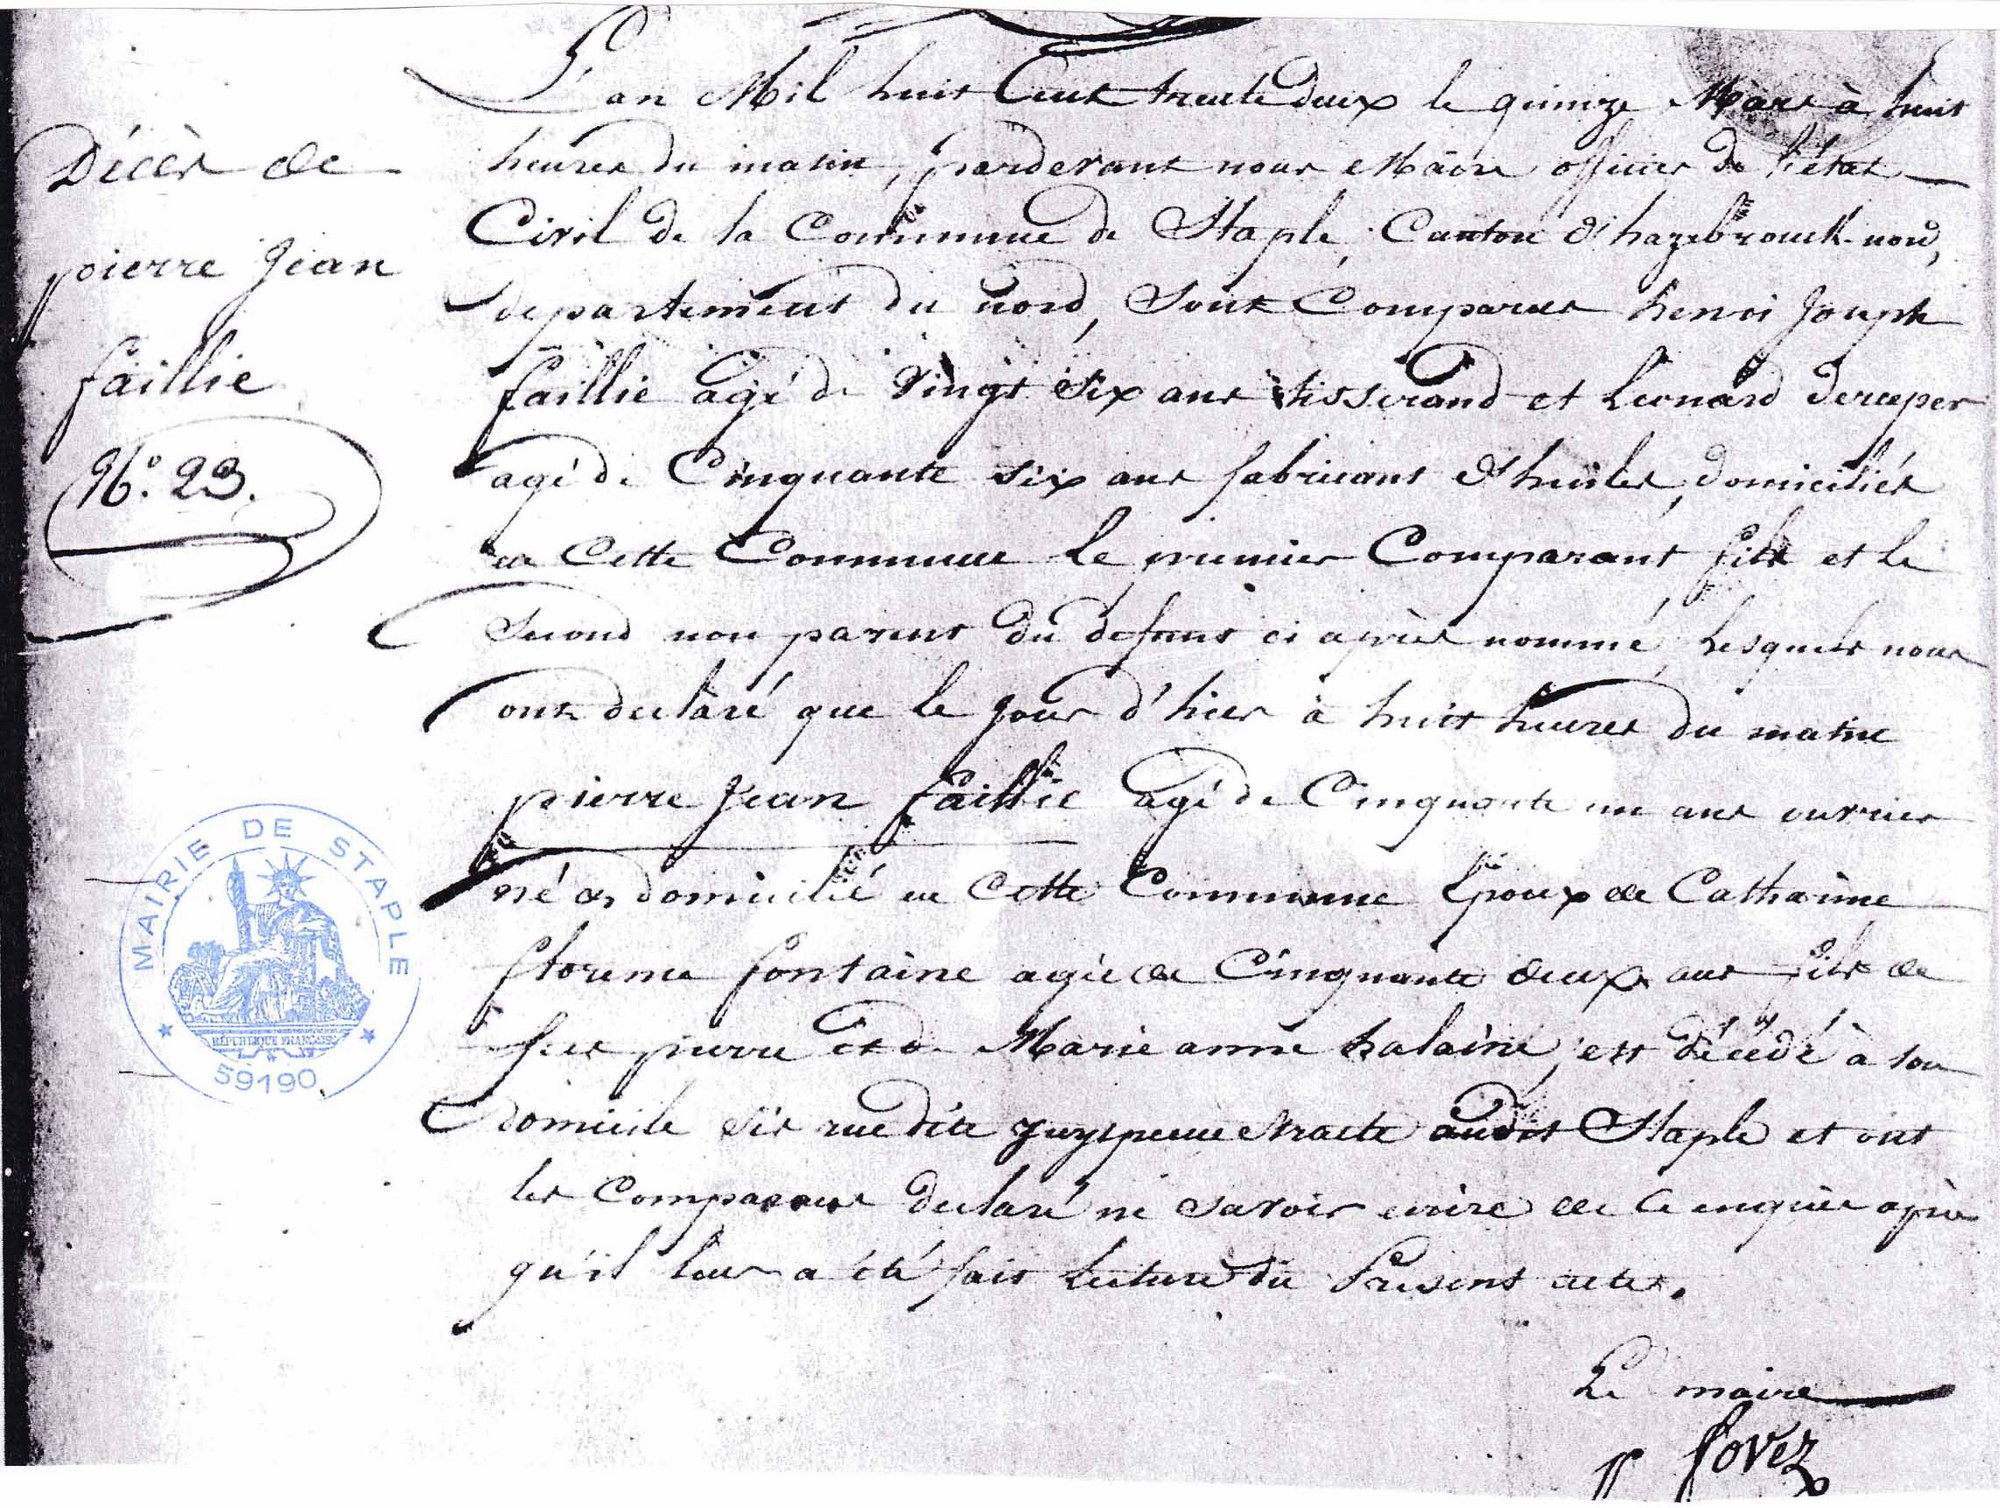 Décès de
pierre Jean
faillie
N.º 23.
L'an Mil huit Cent trente deux le quinze Mars à huit
heures du matin, pardevant nous Maire officier de l'état
Civil de la Commune de Staple, Canton d'hazebrouck-nord,
departement du nord, Sont Comparus henri Joseph
faillie agé de Vingt Six ans tisserand et Léonard
agé de Cinquante six ans fabricant d'huiles, domiciliés
en Cette Commune le premier Comparant fils et le
Second non parent du defunt ci après nommé, Lesquels nous
ont declaré que le Jour d'hier à huit heures du matin
pierre Jean faillie agé de Cinquante un ans ouvrier
né et domicilié en Cette Commune Epoux de Catharine
florence fontaine agée de Cinquante deux ans fils de
feu pierre et de Marie anne halaine, est décédé à son
domicile sis rue dite straete audit Staple et ont
les Comparans declaré ne savoir ecrire de Ce enquis après
qu'il leur a été fait Lecture du Présent acte.
Le maire
fovez
MAIRIE DE STAPLE
RÉPUBLIQUE FRANÇAISE
59190